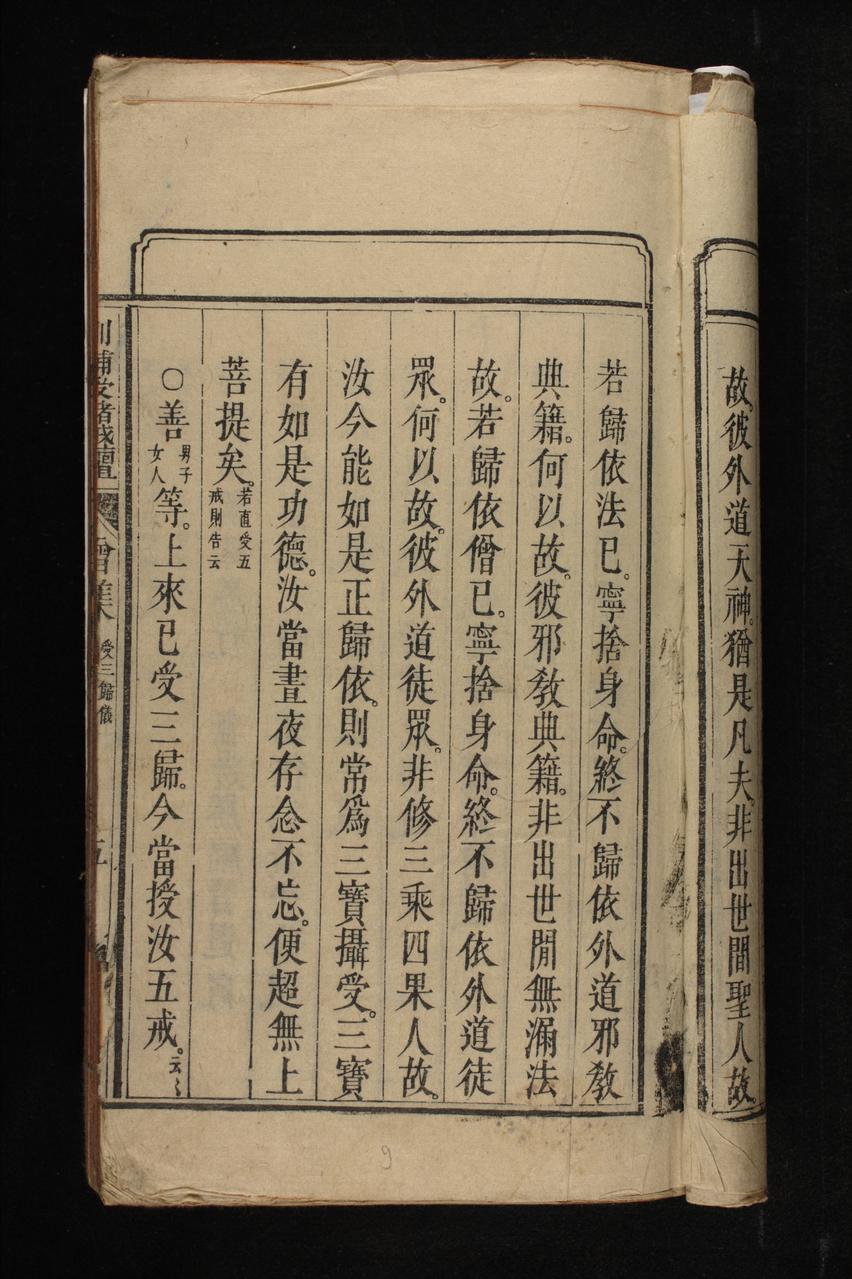 故。彼外道天神。猶是凡夫。非出世間聖人故。
若歸依法已。寧捨身命。終不歸依外道邪教
典籍。何以故。彼邪教典籍。非出世間無漏法
故。若歸依僧已。寧捨身命。終不歸依外道徒
眾。何以故。彼外道徒眾。非修三乘四果人故。
汝今能如是正歸依。則常為三寶攝受。三寶
有如是功德。汝當晝夜存念不忘。便超無上
菩提矣。若直受五戒則告云
○善男子女人等。上來已受三歸。今當授汝五戒。云云
刪補受諸戒壇 會集 受三歸儀 五
9